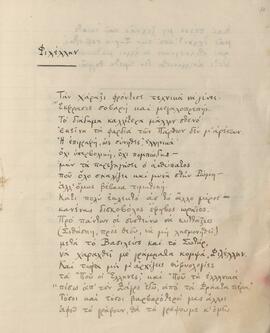 Φιλέλλην
Την χάραξι φρόντισε τεχνικά να γίνει.
Έκφρασις σοβαρή και μεγαλοπρεπής.
Το διάδημα καλλίτερα μάλλον στενό·
εκείνα τα φαρδιά των Πάρθων δεν μ' αρέσουν.
Η επιγραφή, ως σύνηθες, ελληνικά·
όχι υπερβολική, όχι πομπώδης—
μην τα παρεξηγήσει ο ανθύπατος
που όλο σκαλίζει και μηνά στην Ρώμη—
αλλ' όμως βέβαια τιμητική.
Κάτι πολύ εκλεκτό απ' το άλλο μέρος·
κανένας δισκοβόλος έφηβος ωραίος.
Προ πάντων σε συστήνω να κυττάξεις
(Σιθάσπη, προς θεού, να μη λησμονηθεί)
μετά το Βασιλεύς και το Σωτήρ,
να χαραχθεί με γράμματα κομψά, Φιλέλλην.
Και τώρα μη με αρχίζεις ευφυολογίες
τα «Πού οι Έλληνες;» και «Πού τα Ελληνικά
πίσω απ' τον Ζάγρο εδώ, από τα Φράατα πέρα».
Τόσοι και τόσοι βαρβαρότεροί μας άλλοι
αφού το γράφουν, θα το γράψουμε κ' εμείς.